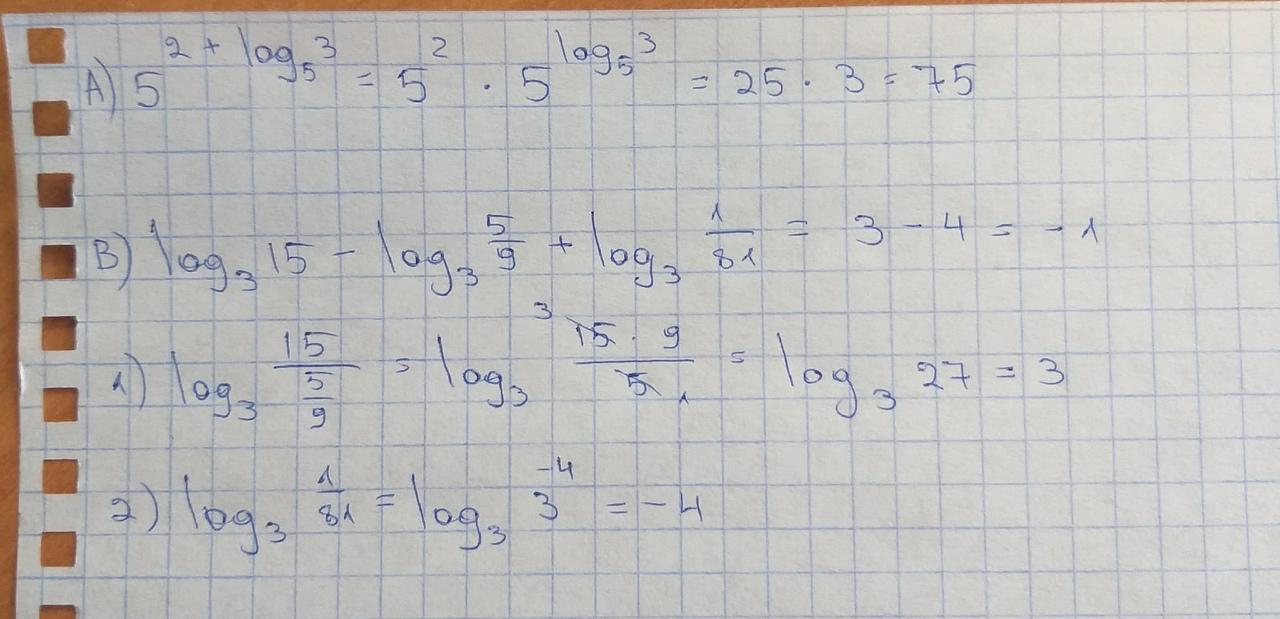 A) 5^{2 + log_5 3} = 5^2 · 5^{log_5 3} = 25 · 3 = 75
B) log_3 15 - log_3 \frac{5}{9} + log_3 \frac{1}{81} = 3 - 4 = -1
1) log_3 \frac{15}{\frac{5}{9}} = log_3 \frac{\cancel{15}^3 · 9}{\cancel{5}_1} = log_3 27 = 3
2) log_3 \frac{1}{81} = log_3 3^{-4} = -4